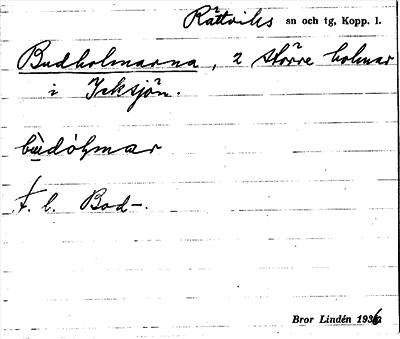 Rättviks sn och tg, Kopp. l.
Budholmarna, 2 större holmar
i Icksjön.
f. l. Bod-.
Bror Lindén 1936